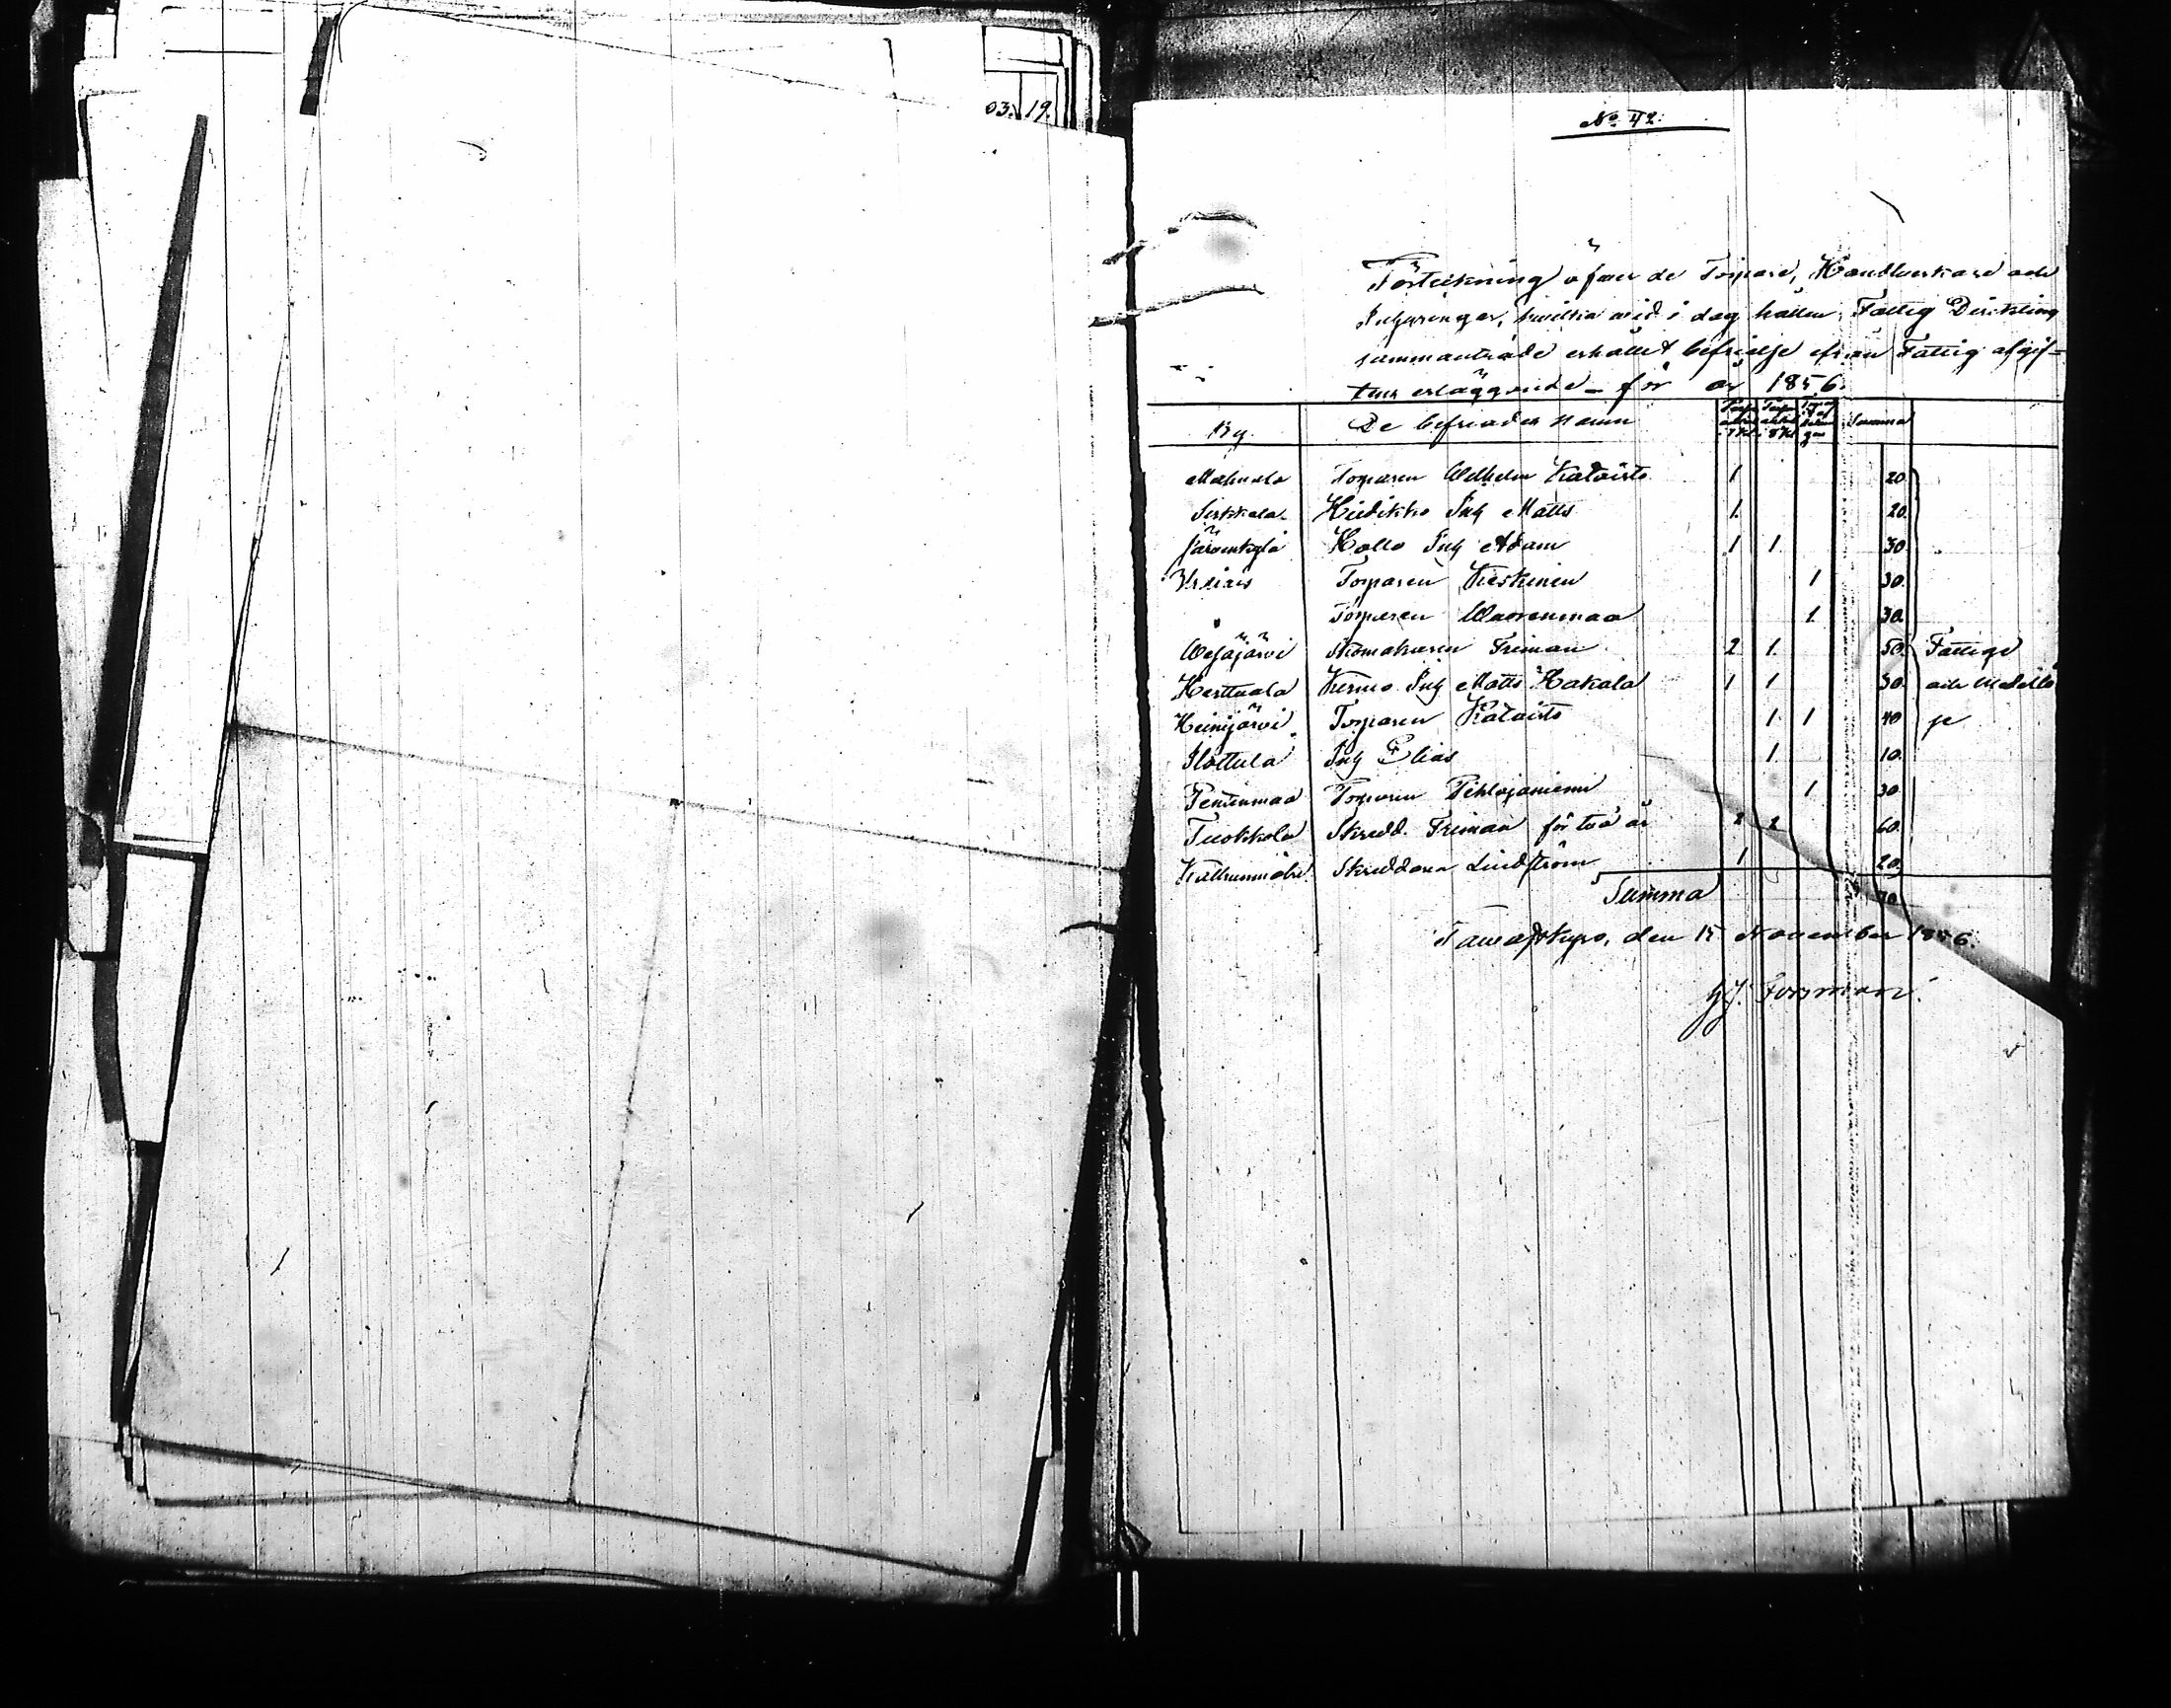 03. 19.
No 42.
Förteckning öfver de Torpare, Handtverkare och
Inhysingar, hvilka vid i dag hållen Fattig Direktions
sammanträde erhållet befrielse ifrån Fattig afgif-
tens erläggande för år 1856.
By. De befriades namn Summa
Torparen Wilhelm Kataisto 1 20.
Sirkkala Hiedikko Inh Matts 1. 20.
Järvenkylä Hollo Inh Adam 1 1. 30.
Torparen Keskinen 1 30.
Torparen Waarenmaa 1. 30.
Wehäjärvi Skomakaren Friman 2. 1. 50. Fattige
Herttuala Inh Matts Hakala 1 1 30. och Medello
Heinijärvi Torparen Kataisto 1. 1 40 se
Slottula Inh Elias 1. 10.
Pentinmaa Torparen Pihlajaniemi 1 30
Tuokkola Skredd. Friman för två år 2 2 60.
Skreddaren Lindström 1 20.
Summa
den 15 November 1856.
Forsman.